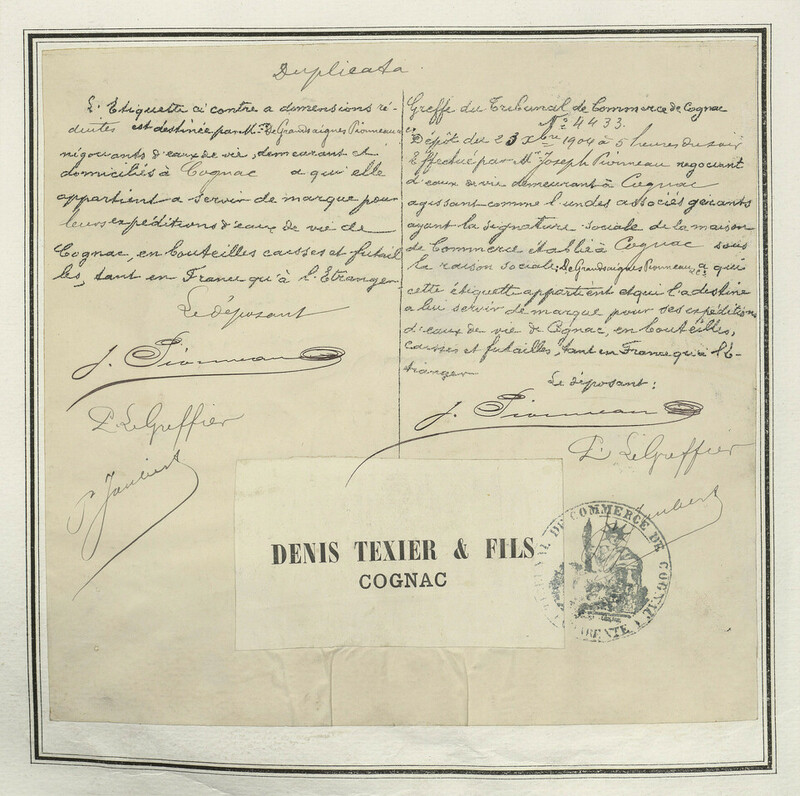 Duplicata
L'Etiquette ci contre a dimensions ré-
duites est destinée par M.rs De Grandsaignes Pionneau
négociants d'eaux de vie, demeurant et
domiciliés à Cognac a qui elle
appartient a servir de marque pour
leurs expéditions d'eaux de vie de
Cognac, en bouteilles caisses et futail
les, tant en France qu'à l'Etranger
Le déposant
J. Pionneau
P. Le Greffier
P. Jaubert
Greffe du Tribunal de Commerce de Cognac
No 4433.
Dépôt du 23 Xbre 1904 à 5 heures du soir
Effectué par Mr. Joseph Pionneau negociant
d'eaux de vie demeurant à Cognac
agissant comme l'un des associés gérants
ayant la signature sociale de la maison
de Commerce établie à Cognac sous
la raison sociale: De Grandsaignes Pionneau & Cie a qui
cette étiquette appartient et qui l'a destine
a lui servir de marque pour ses expéditions
d'eaux de vie de Cognac, en bouteilles,
caisses et futailles, tant en France qu'à l'É-
tranger
Le déposant:
J. Pionneau
P. Le Greffier
Jaubert
DENIS TEXIER & FILS
COGNAC
TRIBUNAL DE COMMERCE DE COGNAC
CHARENTE